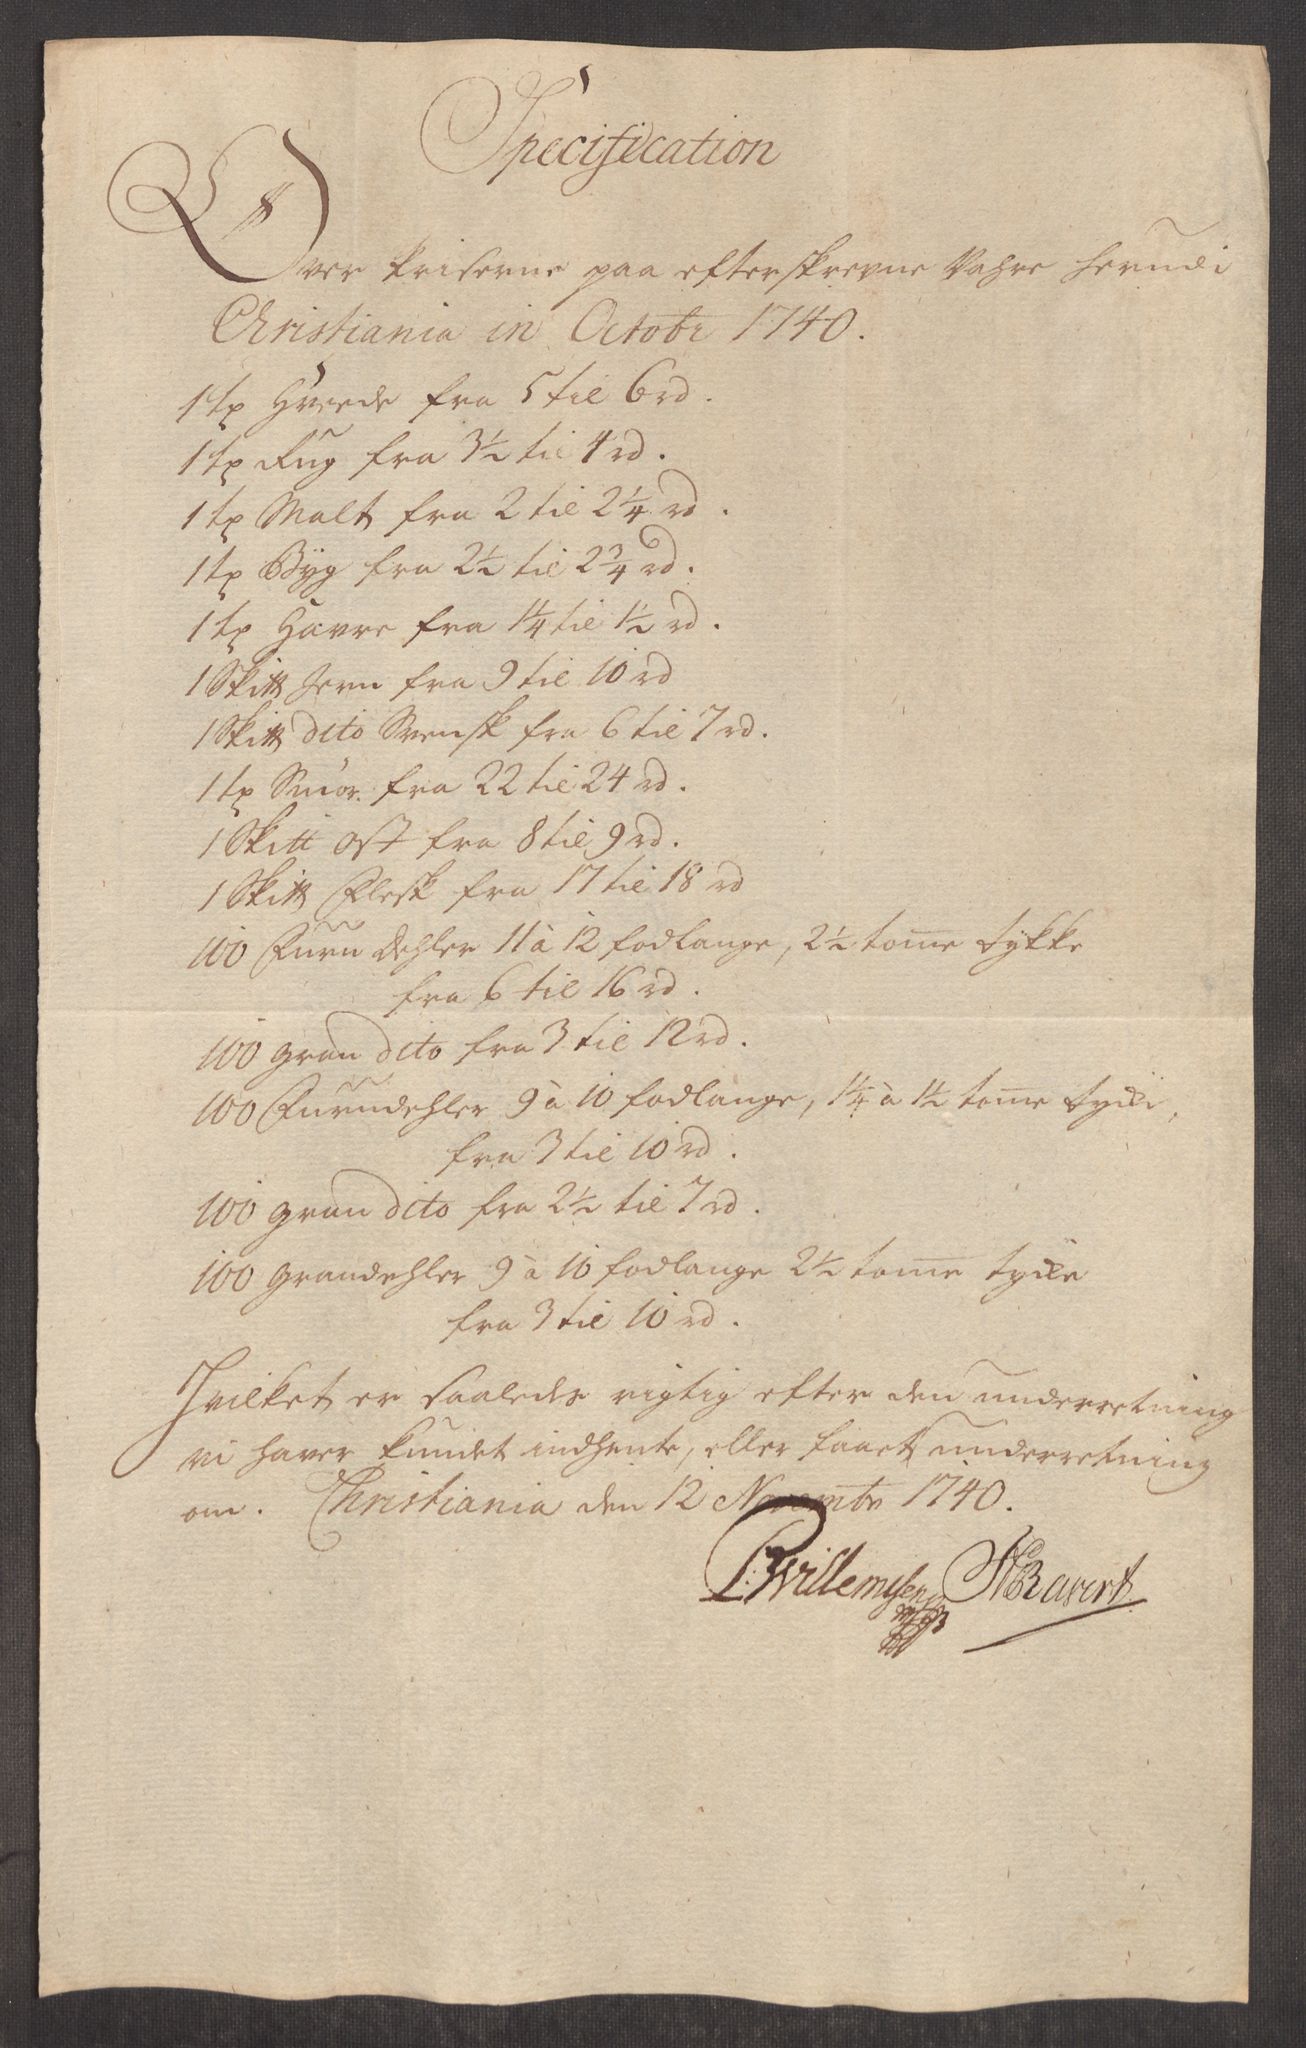 Specification
Over Priserne paa efterskrevne Vahre herudi
Christiania in Octobr 1740.
1 tp Hvede fra 5 til 6 rd.
1 tp Rug fra 3½ til 4 rd.
1 tp Malt fra 2 til 2¼ rd.
1 tp Byg fra 2½ til 2¾ rd.
1 tp Havre fra 1¼ til 1½ rd.
1 Skitt Jern fra 9 til 10 rd
1 Skitt dito Svensk fra 6 til 7 rd.
1 tp Smör. fra 22 til 24 rd.
1 Skitt Ost fra 8 til 9 rd.
1 Skitt Flesk fra 17 til 18 rd
100 Furu dehler 11 à 12 fodlange, 2½ tome tykke
fra 6 til 16 rd.
100 gran dito fra 3 til 12 rd.
100 Furudehler 9 à 10 fodlange, 1¼ à 1½ tome tycke,
fra 3 til 10 rd.
100 gran dito fra 2½ til 7 rd.
100 grandehler 9 à 10 fodlange 2½ tome tycke
fra 3 til 10 rd.
Hvilket er saaledes rigtig efter den underretning
vi haver kundet indhente, eller faaet underretning
om. Christiania den 12 Novembr 1740.
Willemsen NRavert